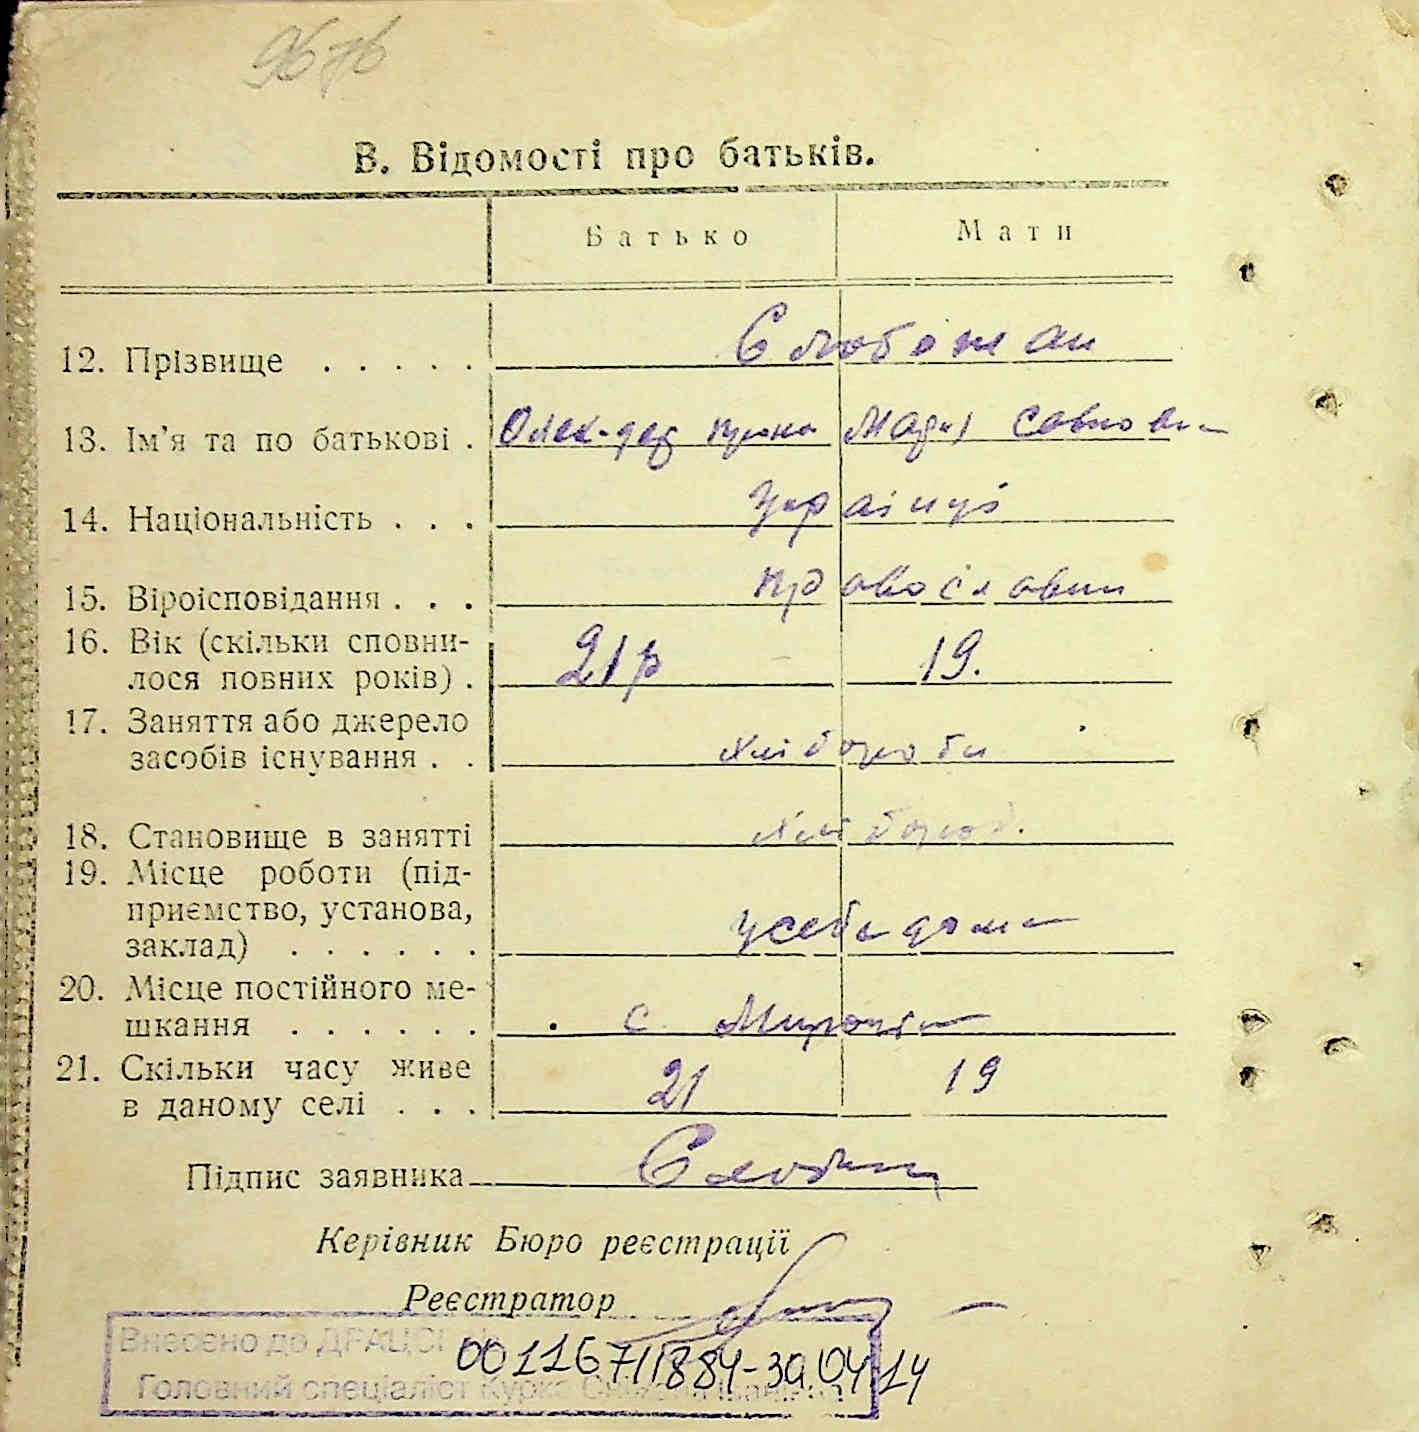 9676
В. Відомості про батьків.
Батько Мати
12. Прізвище . . . . . Слюбожан
13. Ім'я та по батькові . Олек-дер Мария Савков
14. Національність . . . Українці
15. Віроісповідання . . . православни
16. Вік (скільки сповни-
лося повних років) . 21 р 19.
17. Заняття або джерело
засобів існування . . хлібороби
18. Становище в занятті хлібороб.
19. Місце роботи (під-
приємство, установа,
заклад) . . . . . . у себе дома
20. Місце постійного ме-
шкання . . . . . . с.
21. Скільки часу живе
в даному селі . . . 21 19
Підпис заявника
Керівник Бюро реєстрації
Реєстратор
Внесено до ДРАЦСГ
00116711884-30.04.14
Головний спеціаліст